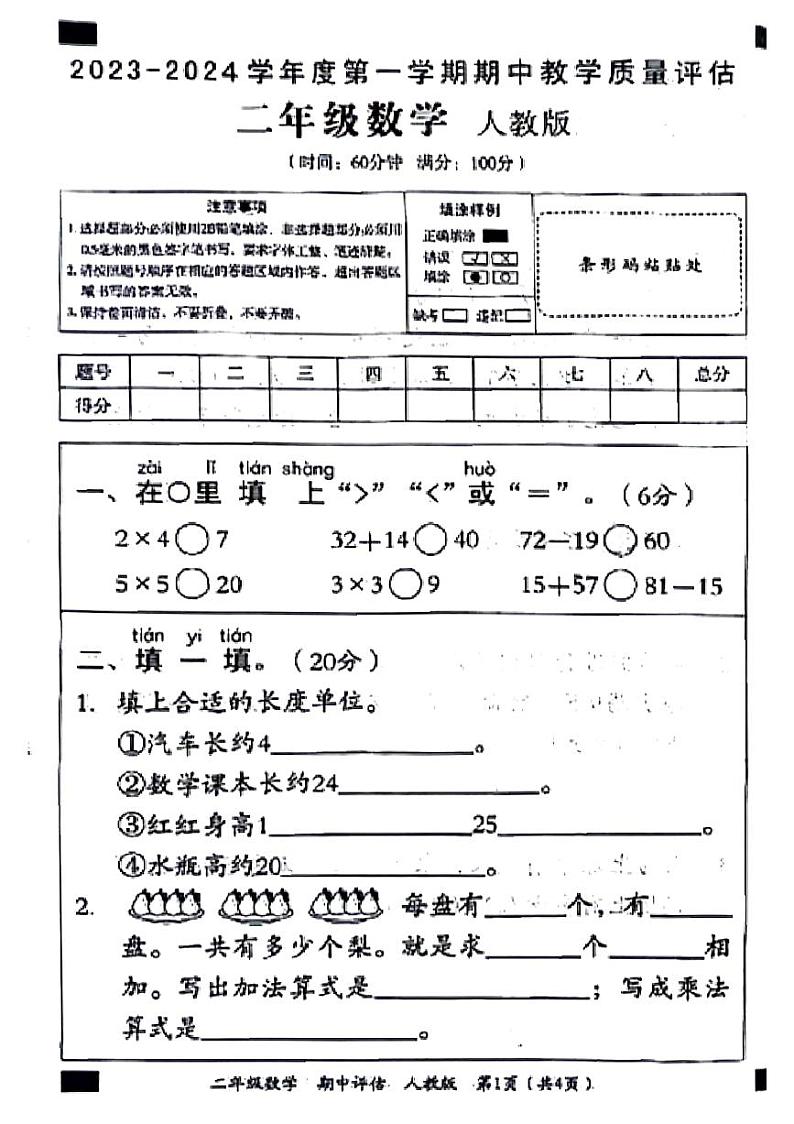 2023-2024学年度第一学期期中教学质量评估
二年级数学 人教版
(时间：60分钟 满分：100分)
注意事项
1.选择题部分必须使用2B铅笔填涂，非选择题部分必须用
0.5毫米的黑色签字笔书写，要求字体工整、笔迹清楚。
2.请按照题号顺序在相应的答题区域内作答，超出答题区
域书写的答案无效。
3.保持卷面清洁，不要折叠，不要弄破。
填涂样例
正确填涂
错误
填涂
缺考 违纪
条形码粘贴处
题号 一 二 三 四 五 六 七 八 总分
得分
zài lǐ tián shàng huò
一、在○里填上“>”“<”或“=”。(6分)
2×4○7 32+14○40 72-19○60
5×5○20 3×3○9 15+57○81-15
tián yi tián
二、填一填。(20分)
1. 填上合适的长度单位。
①汽车长约4______。
②数学课本长约24______。
③红红身高1______25______。
④水瓶高约20______。
2. 每盘有____个，有____
盘。一共有多少个梨。就是求____个____相
加。写出加法算式是______；写成乘法
算式是______。
二年级数学 期中评估 人教版 第1页(共4页)